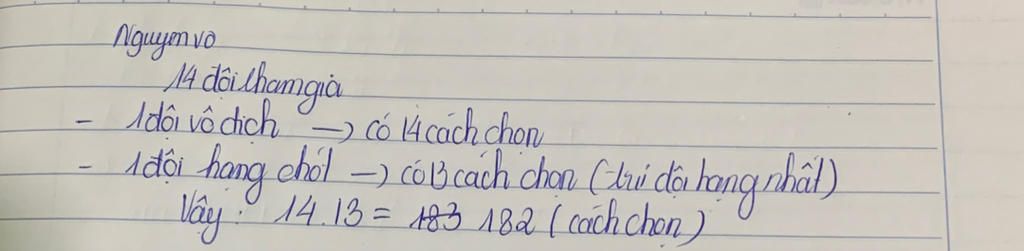 Nguyen vo
14 đội tham gia
- 1 đội vô địch → có 14 cách chọn
- 1 đội hạng chót → có 13 cách chọn (trừ đội hạng nhất)
Vậy: 14.13 = 183 182 (cách chọn)